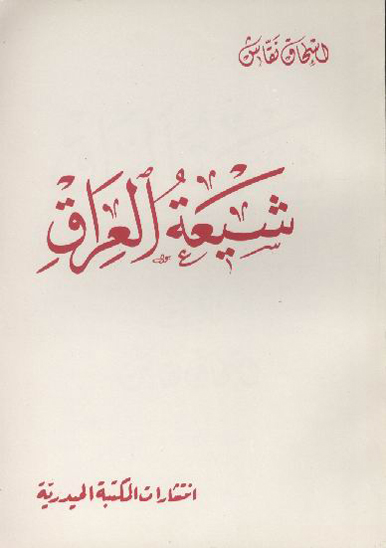 إسحاق نقّاش
شيعَةُ العِرَاقِ
انتشارات المكتبة الحيدريّة